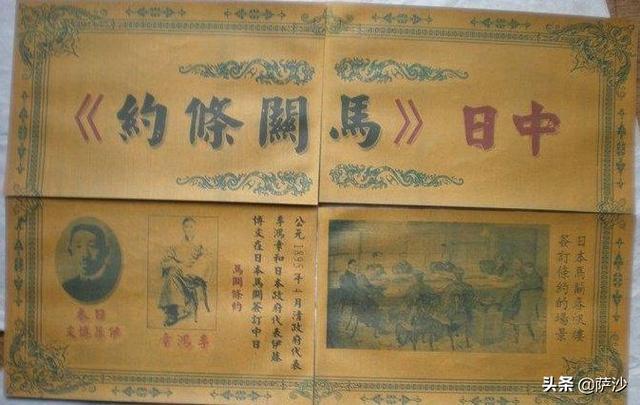 中日《馬關條約》
日本馬關春帆樓
簽訂條約的場景
公元1895年4月清政府代表
李鴻章和日本政府代表伊藤
博文在日本馬關簽訂中日
馬關條約
李鴻章
日本
伊藤博文
头条 @萨沙